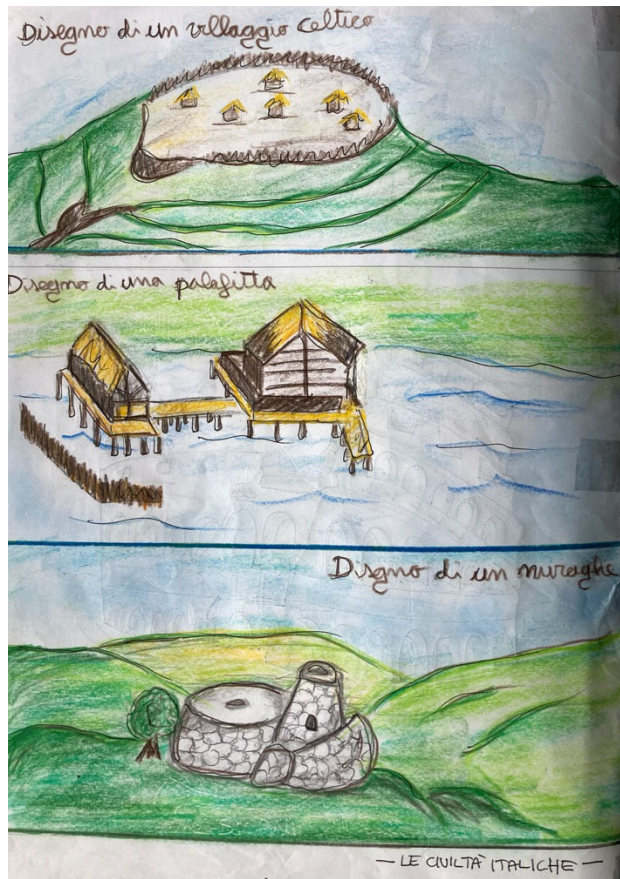 Disegno di un villaggio Celtico
Disegno di una palafitta
Disegno di un nuraghe
— LE CIVILTÀ ITALICHE —